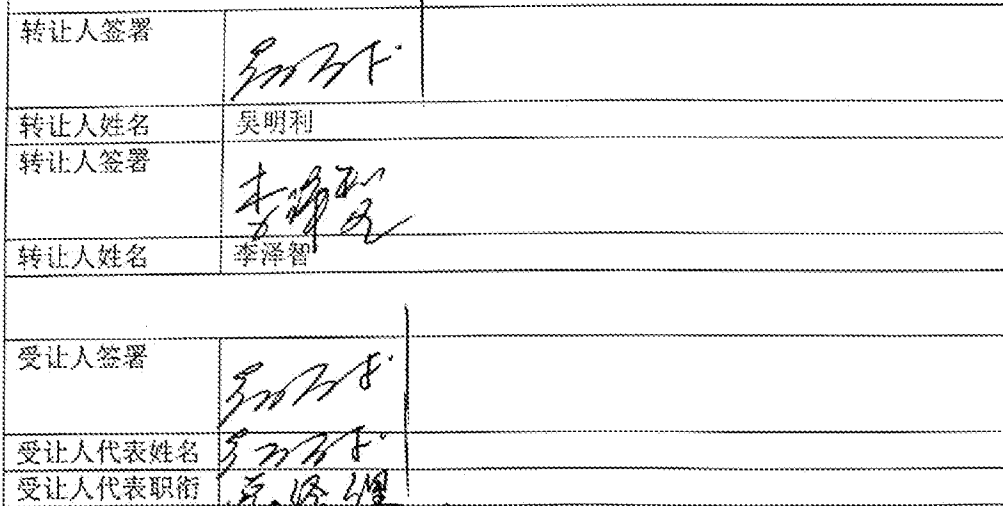 转让人签署
转让人姓名 吴明利
转让人签署 李泽智
转让人姓名 李泽智
受让人签署
受让人代表姓名
受让人代表职衔 总经理